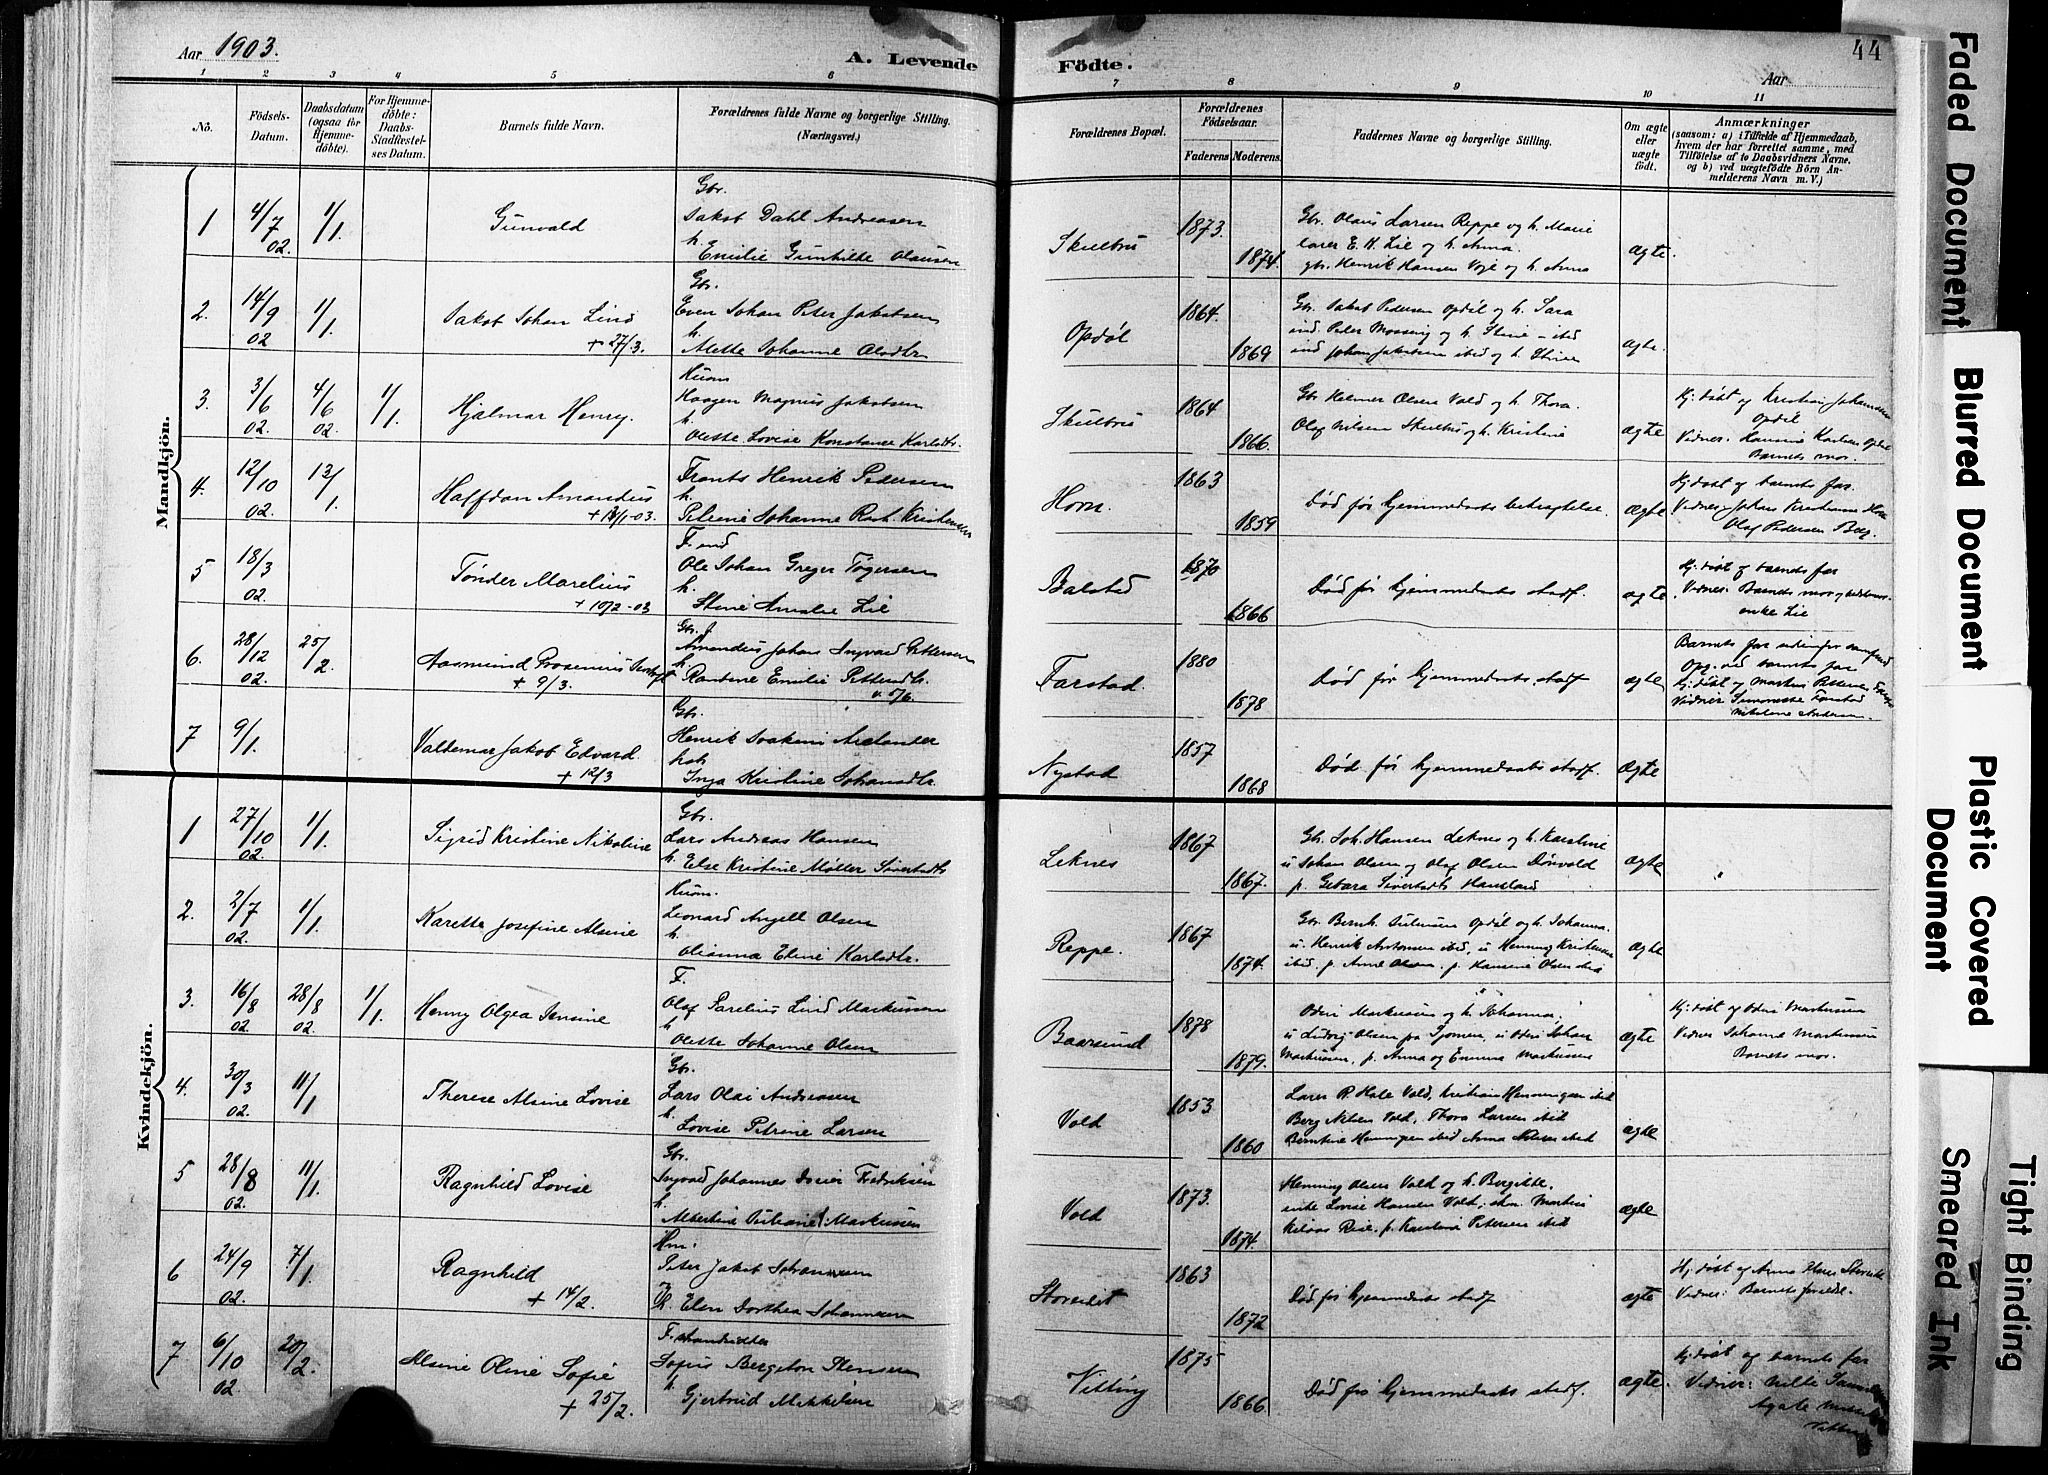 Aar 1903.
A. Levende
Födte.
Aar
44
1 2 3 4 5 6 7 8 9 10 11
No.
Födsels-
Datum.
Daabsdatum
(ogsaa for
Hjemme-
döbte).
For Hjemme-
döbte:
Daabs-
Stadfæstel-
ses Datum.
Barnets fulde Navn.
Forældrenes fulde Navne og borgerlige Stilling.
(Næringsvei.)
Forældrenes Bopæl.
Forældrenes
Födselsaar.
Faderens. Moderens.
Faddernes Navne og borgerlige Stilling.
Om ægte
eller
uægte
födt.
Anmærkninger
(saasom: a) i Tilfælde af Hjemmedaab,
hvem der har forrettet samme, med
Tilföielse af to Daabsvidners Navne,
og b) ved uægtefödte Börn An-
melderens Navn m. V.)
Mandkjön.
1 4/7 02. 1/1. Gunvald
Gbr.
Jakob Dahl Andreasen
h.
Emilie Gunhilde Olausen
Skulbru 1873. 1874.
Gbr. Olaus Larsen Reppe og h. Marie
Larer E. H. Lie og h. Anna.
gbr. Henrik Hansen Voje og h. Anna
ægte.
2. 14/9 02 1/1. Jakob Johan Lind
+ 27/3.
Gbr.
Even Johan Peter Jakobsen
h.
Alette Johanne Olsdtr
Opdöl 1864. 1869
Gbr. Jakob Pedersen Opdöl og h. Sara
ind. Peder Mosseng og h. Stine - ibid
ind Johan Jakobsen ibid og h. Stine
ægte.
3. 3/6 02. 4/6 02. 1/1. Hjalmar Henry.
Husm
Haagen Magnus Jakobsen
h.
Olette Lovise Konstance Karlsdtr.
Skulbru 1864 1866.
Gbr Helmer Olsen Vold og h. Thora.
Olaf Nilsen Skulbru og h. Kristine
ægte
Hj. döbt af Kristian Johannsen
Opdöl
Vidner: Hansine Karlsen Opdöl
Barnets mor.
4. 12/10 02. 13/1 Halfdan Amandus
+ 13/1-03.
Frants Henrik Pedersen
h.
Petrine Johanne Kristensen
Horn. 1863 1859
Död för hjemmedaabs betragtelse.
ægte
Hj. döbt af barnets far.
Vidner Johan Kristiansen Horn
Olaf Pedersen Berg.
5 18/3 02. Tönder Marelius
+ 10/2-03
F. ind
Ole Johan Greger Tögersen
h.
Stine Amalie Lie
Balstad 1870 1866
Död för hjemmedaabs stadf.
ægte
Hj. döbt af barnets far
Vidner: Barnets mor og
enke Lie
6. 28/12 02. 25/2. Aasmund Prosenius
+ 9/3.
Gbr.
Amandus Johan Ingvard Pettersen
h.
Rantine Emilie Pettersdtr.
Farstad. 1880 1878
Död för hjemmedaabs stadf
ægte
Barnets far udenfor samfund
Opg. ved barnets far
Hj. döbt af Martin Pettersen
Vidner Farstad
Nikoline Andersen
7 9/1. Valdemar Jakob Edvard.
+ 12/3
Gbr.
Henrik Joakim Arelander
hst.
Inga Kristine Johansdtr.
Nystad 1857 1868
Död för hjemmedaabs stadf.
ægte
Kvindekjön.
1 27/10 02. 1/1. Sigrid Kristine Nikoline
Gbr.
Lars Andreas Hansen
h. Else Kristine Möller Sivertsdtr
Leknes 1867 1867.
Gbr. Joh. Hansen Leknes og h. Karoline
u Johan Olsen og Olaf Olsen Dönvold
p. Sivertsdtr Haugland
ægte
2. 2/7 02. 1/1. Karette Josefine Alsine
Husm.
Leonard Angell Olsen
h.
Olianna Eline Karlsdtr.
Reppe. 1867 1874.
Gbr. Bernh. Opdöl og h. Johanna.
u. Henrik Antonsen ibid, u Henning Kristensen
ibid. p Anna Olsen. p. Hansine Olsen ibid
ægte
3. 16/8 02. 28/8 02. 1/1. Henny Olgea Jensine
F.
Olaf Parelius Lind Markussen
h
Olette Johanne Olsen
Baarsund 1878 1879.
Odin Markussen og h. Johanna;
u Ludvig Olsen paa Tjomen, u Odin Johan
Markussen, p. Anna og Emma Markussen
ægte
Hj. döbt af Odin Markussen
Vidner Johanna Markussen
Barnets mor.
4. 30/3 02. 11/1 Therese Alsine Lovise
Gbr.
Lars Olai Andreasen
h.
Lovise Petrine Larsen
Vold 1853 1860
Larer R. Hole Vold, Kristian Henningsen ibid
Berg Nilsen Vold, Thora Larsen ibid
Berntine Henningsen ibid Anna Nilsen ibid
ægte
5 28/8 02. 11/1. Ragnhild Lovise
Gbr.
Ingvald Johannes Fredriksen
h.
Albertine Juliane Markussen
Vold 1873. 1874.
Henning Olsen Vold og h. Bergitte.
enke Lovise Hansen Vold; Martin
Rise, p. Karoline Petersen ibid
ægte
6 24/9 02. 7/1. Ragnhild
+ 14/2.
Hm.
Peter Jakob Johannessen
h. Elen Dorthea Johannessen
Storeidet 1863 1872
Död för hjemmedaabs stadf
ægte
Hj. döbt af Anna Storeide
Vidner: Barnets forældre.
7. 6/10 02. 20/2. Alsine Oline Sofie
+ 25/2.
F. strandsidder
Sofus Bergeton Stensen
h.
Gjertrud Mikkelsen
Vitting 1875 1866
Död för hjemmedaabs stadf.
ægte.
Hj. döbt af barnets far
Vidner:
Faded Document
Blurred Document
Plastic Covered
Document
Tight Binding
Smeared Ink